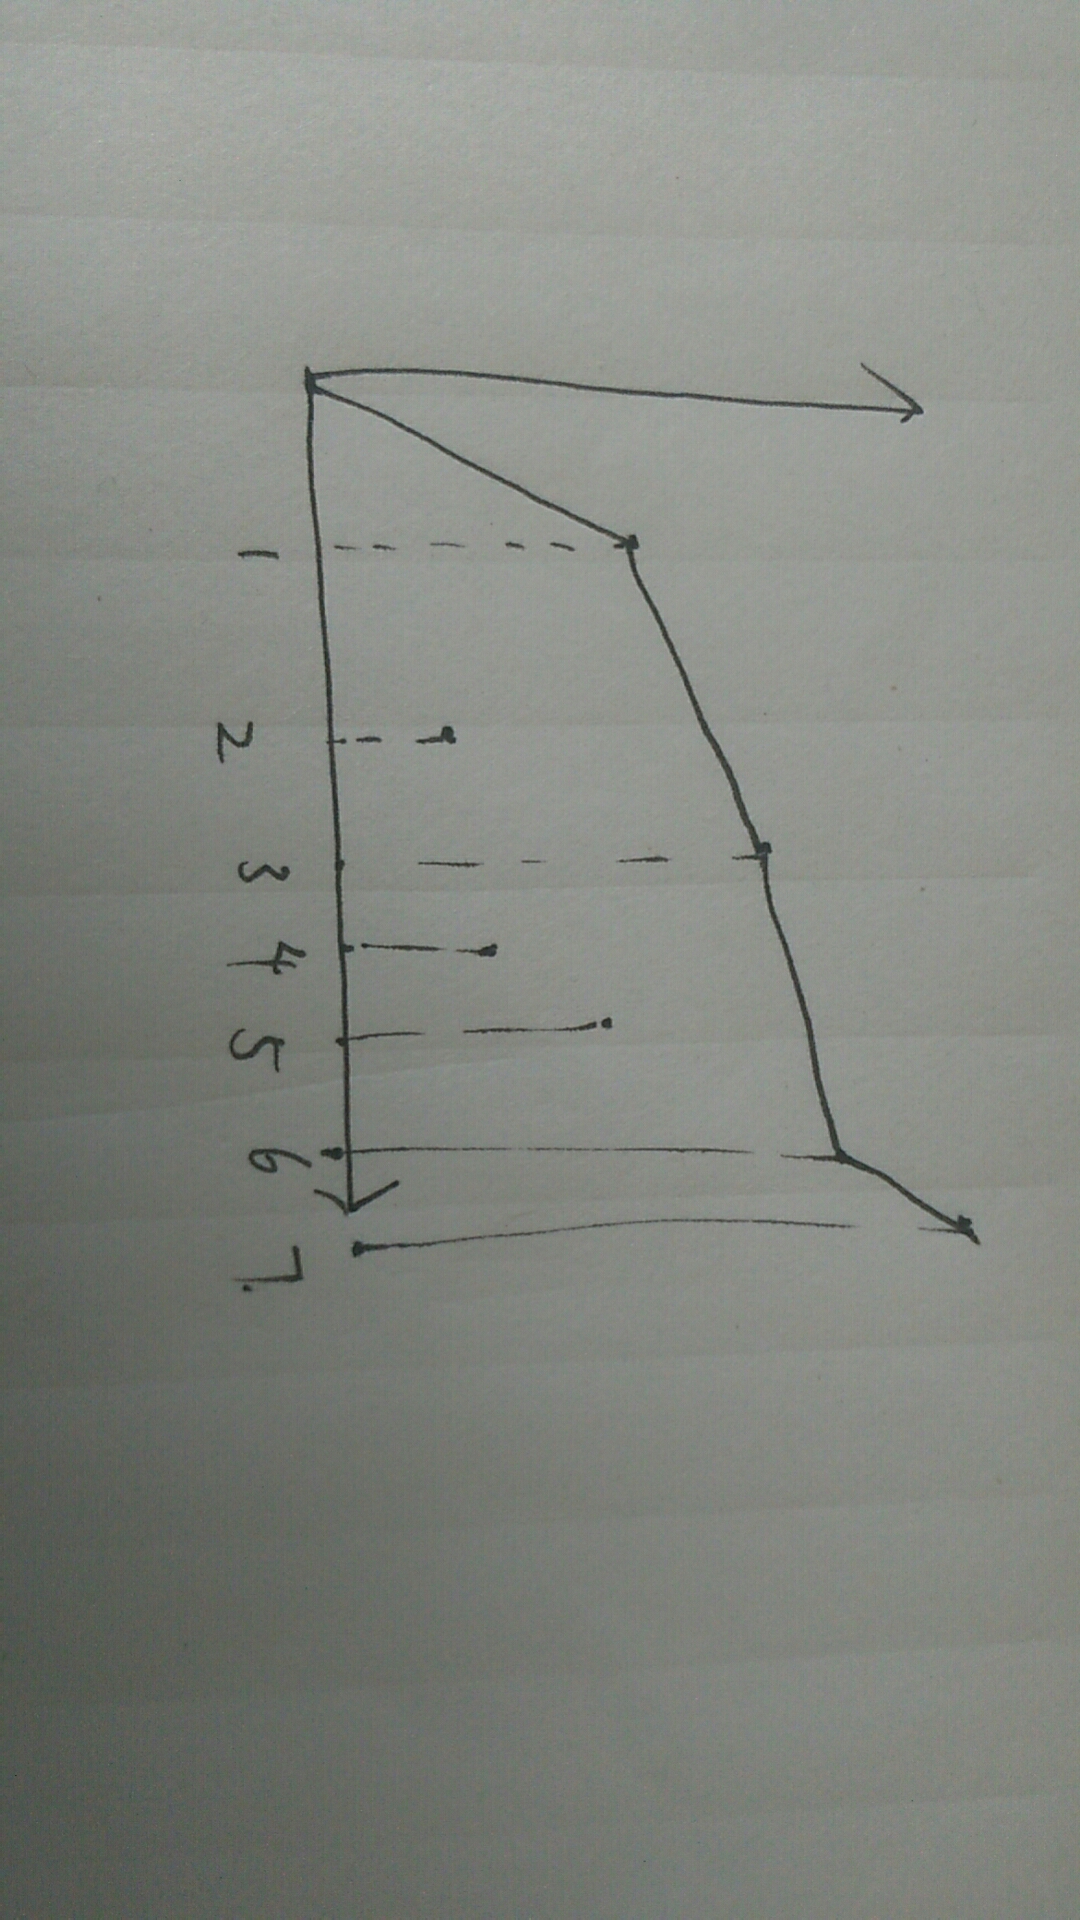 1 2 3 4 5 6 7.